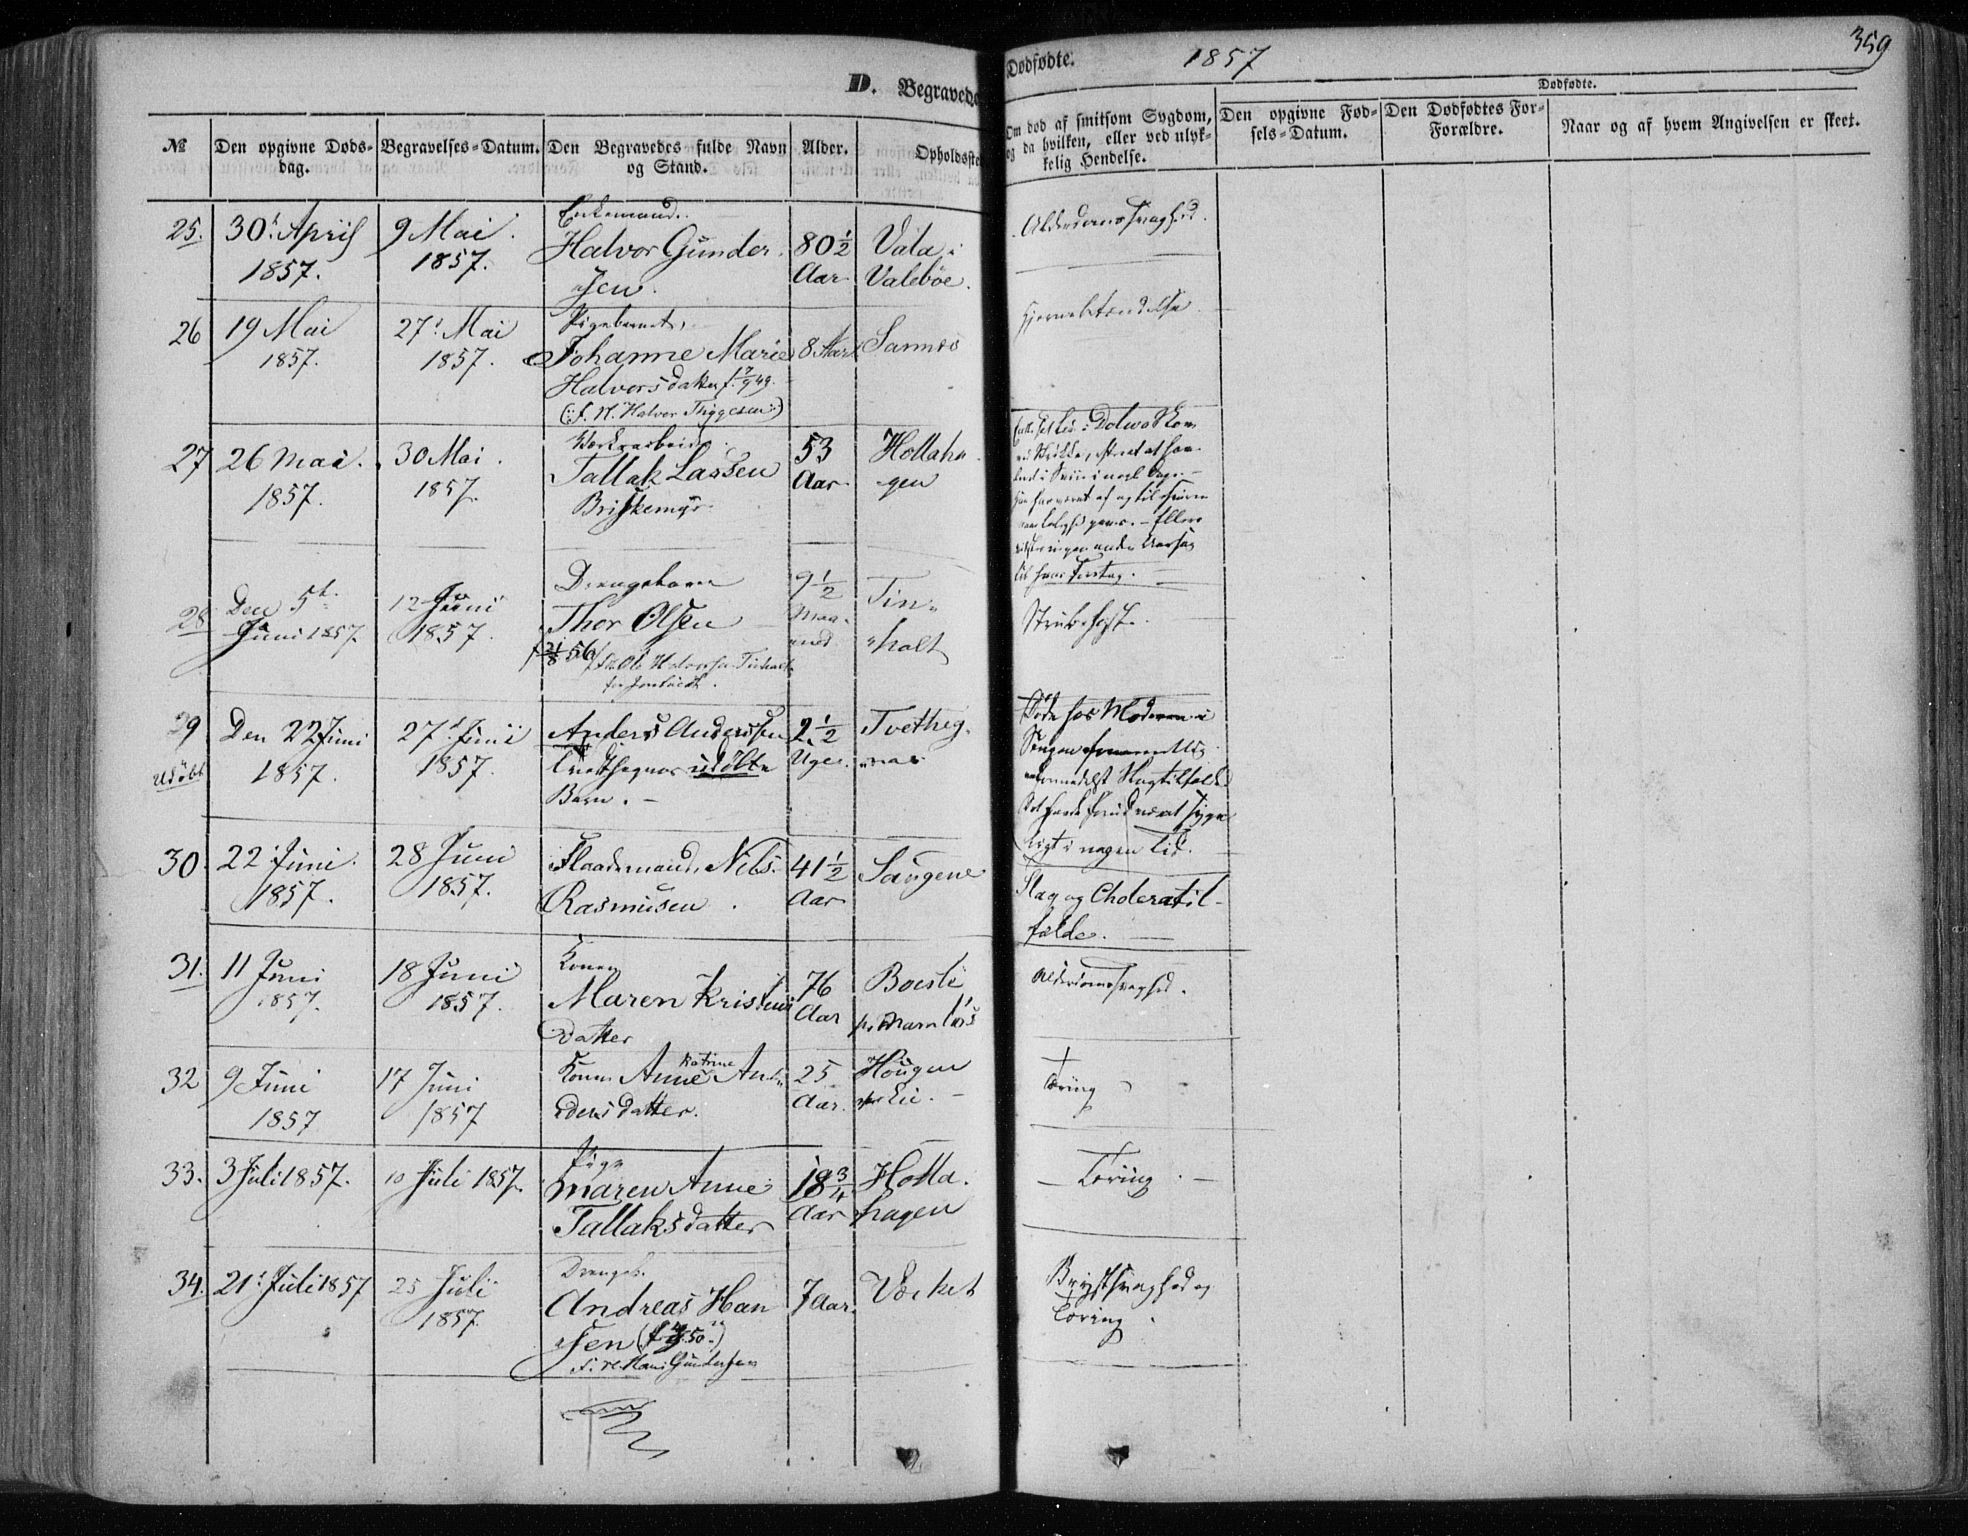 D. Begravede
Dødfødte.
1857
359
Dødfødte.
№
Den opgivne Døds-
dag.
Begravelses-Datum.
Den Begravedes fulde Navn
og Stand.
Alder.
Opholdsste
Om død af smitsom Sygdom,
og da hvilken, eller ved ulyk-
kelig Hendelse.
Den opgivne Fød-
sels-Datum.
Den Dødfødtes For-
Forældre.
Naar og af hvem Angivelsen er skeet.
25.
30t April
1857.
9 Mai.
1857.
Enkemand.
Halvor Gunder
sen.
80 ½
Aar
Vala i
Valebøe.
Alderdomssvaghed.
26
19 Mai
1857.
27t Mai
1857.
Pigebarnet,
Johanne Marie
Halvorsdatter
(: f. N. Halvor Thygesen :)
8 Aar
Sannes
Hjernebetændelse
27
26 Mai.
1857.
30 Mai.
1857.
Værksarbeid.
Tallak Lassen
Briskemyr.
53
Aar
Hollaha
gen
28
Den 5t
Juni 1857.
12 Juni
1857.
Drengebarn
Thor Olsen
f 21/8 56
9 ½
Maa-
ned
Tin-
holt
Strubehoste.
29
Udøbt
Den 22 Juni
1857.
27t Juni
1857.
Anders Anderssen
Tvethognas udøbte
Barn. -
2 ½
Uger.
Tvethog-
nas
Døde hos Moderen i
Sengen
Slagtilfælde
ligt i nogen Tid.
30.
22 Juni.
1857.
28 Juni
1857.
Flaademand, Nils
Rasmusen.
41 ½
Aar
Saugene
Slag og Choleratil-
fælde.
31.
11 Juni
1857.
18 Juni
1857.
Konen
Maren Kristens
datter
76
Aar
Alderdomssvaghed.
32
9 Juni
1857
17 Juni
1857
Konen Anne Katrine An-
dersdatter.
25
Aar.
Hougen
Eie. -
Tæring
33.
3 Juli 1857.
10 Juli 1857.
Pige
Maren Anne
Tallaksdatter
18 ¾
Aar
Holla.
hagen
- Tæring. -
34.
21t Juli 1857
25 Juli
1857.
Drengeb.
Andreas Han
sen
F. N. Hans Gundersen
7 Aar.
Værket
Brystsvaghed og
Tæring.